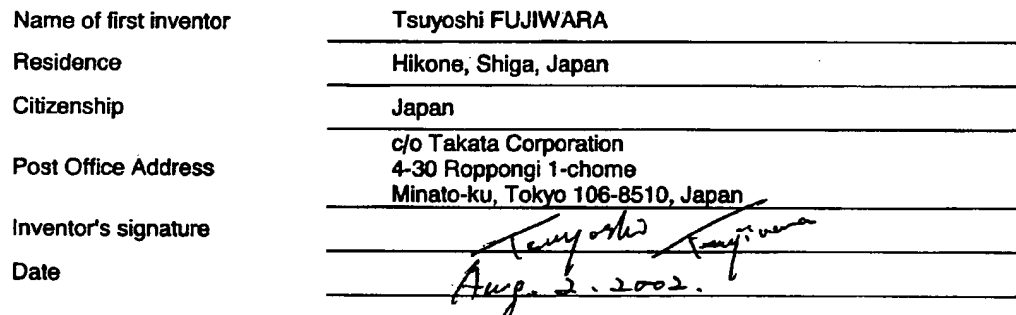 Name of first inventor Tsuyoshi FUJIWARA
Residence Hikone, Shiga, Japan
Citizenship Japan
Post Office Address c/o Takata Corporation
4-30 Roppongi 1-chome
Minato-ku, Tokyo 106-8510, Japan
Inventor's signature Tsuyoshi Fujiwara
Date Aug. 2. 2002.